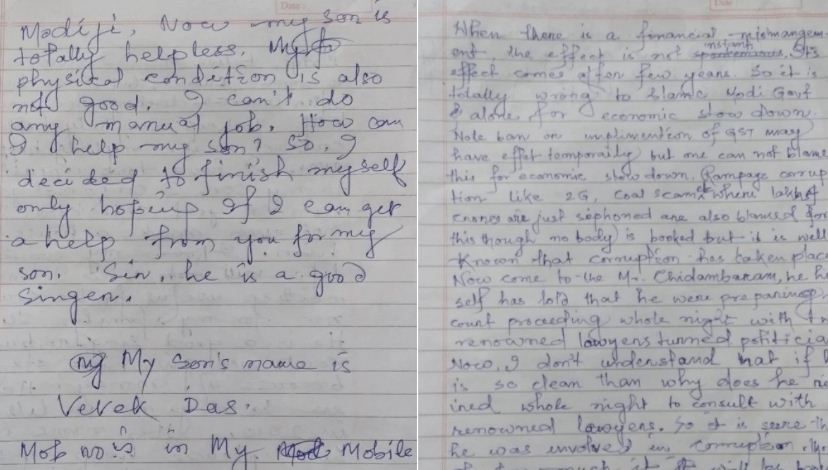 Modiji, Now my son is
totally helpless. My
physical condition is also
not good. I can't do
any manual job. How can
I help my son? So, I
decided to finish myself
only hoping If I can get
a help from you for my
son. Sir, he is a good
Singer.
My Son's name is
Vevek Das.
Mob no is in My Mobile
When there is a financial mismangem-
ent the effect is not instant. Its
effect comes after few years. So it is
totally wrong to blame Modi Govt
alone for economic slow down.
Note ban or implimention of GST may
have effet temporaily but one can not blame
this for economic slow down. Rampage corrup
tion like 2G, Coal Scam where
crores are just sophoned are also blamed for
this though no body is booked but it is well
Known that corruption has taken place
Now come to the Mr. Chidambaram, he h
self has told that he were preparing
court proceeding whole night with
renowned lawyers turned politicia
Now, I don't understand that if h
is so clean than why does he
ined whole night to consult with
renowned lawyers. So it is sure th
he was involved in corruption.